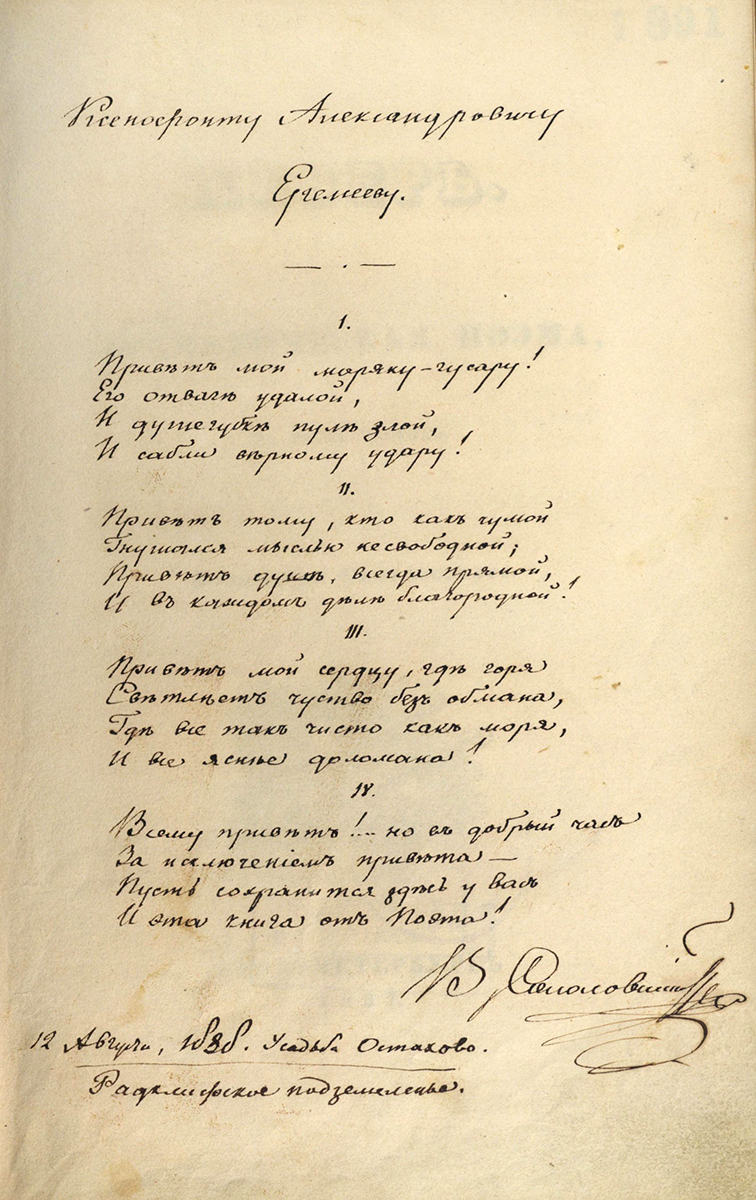 Ксенофонту Александровичу
Ергемееву.
1.
Привѣтъ мой моряку-гусару!
Его отвагѣ удалой,
И душегубкѣ пулѣ злой,
И сабли вѣрному удару!
II.
Привѣтъ тому, кто какъ чумой
Гнушался мыслью несвободной;
Привѣтъ душѣ, всегда прямой,
И въ каждомъ дѣлѣ благородной!
III.
Привѣтъ мой сердцу, гдѣ горя
Свѣтлѣетъ чуство безъ обмана,
Гдѣ все такъ чисто какъ моря,
И все яснѣе доломана!
IV.
Всему привѣтъ!... но въ добрый часъ
За исключеніемъ привѣта —
Пусть сохранится здѣсь у васъ
И эта книга отъ Поэта!
В. Соколовскій
12 Августа, 1838. Усадьба Остахово.
Радклифское подземеленье.